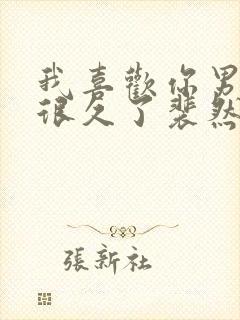 我喜歡你男
很久了裴然
張新社